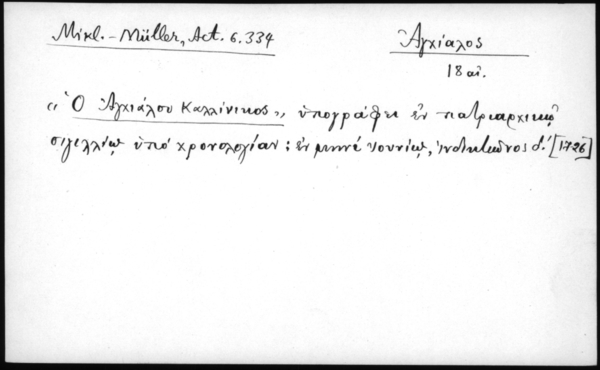 Mikl.-Müller, Act. 6.334
Ἀγχίαλος
18 αἰ.
"Ὁ Ἀγχιάλου Καλλίνικος" ὑπογράφει ἐν πατριαρχικῷ
σιγιλλίῳ ὑπό χρονολογίαν: ἐν μηνί Ἰουνίῳ, ἰνδικτιῶνος δ.' [1726]